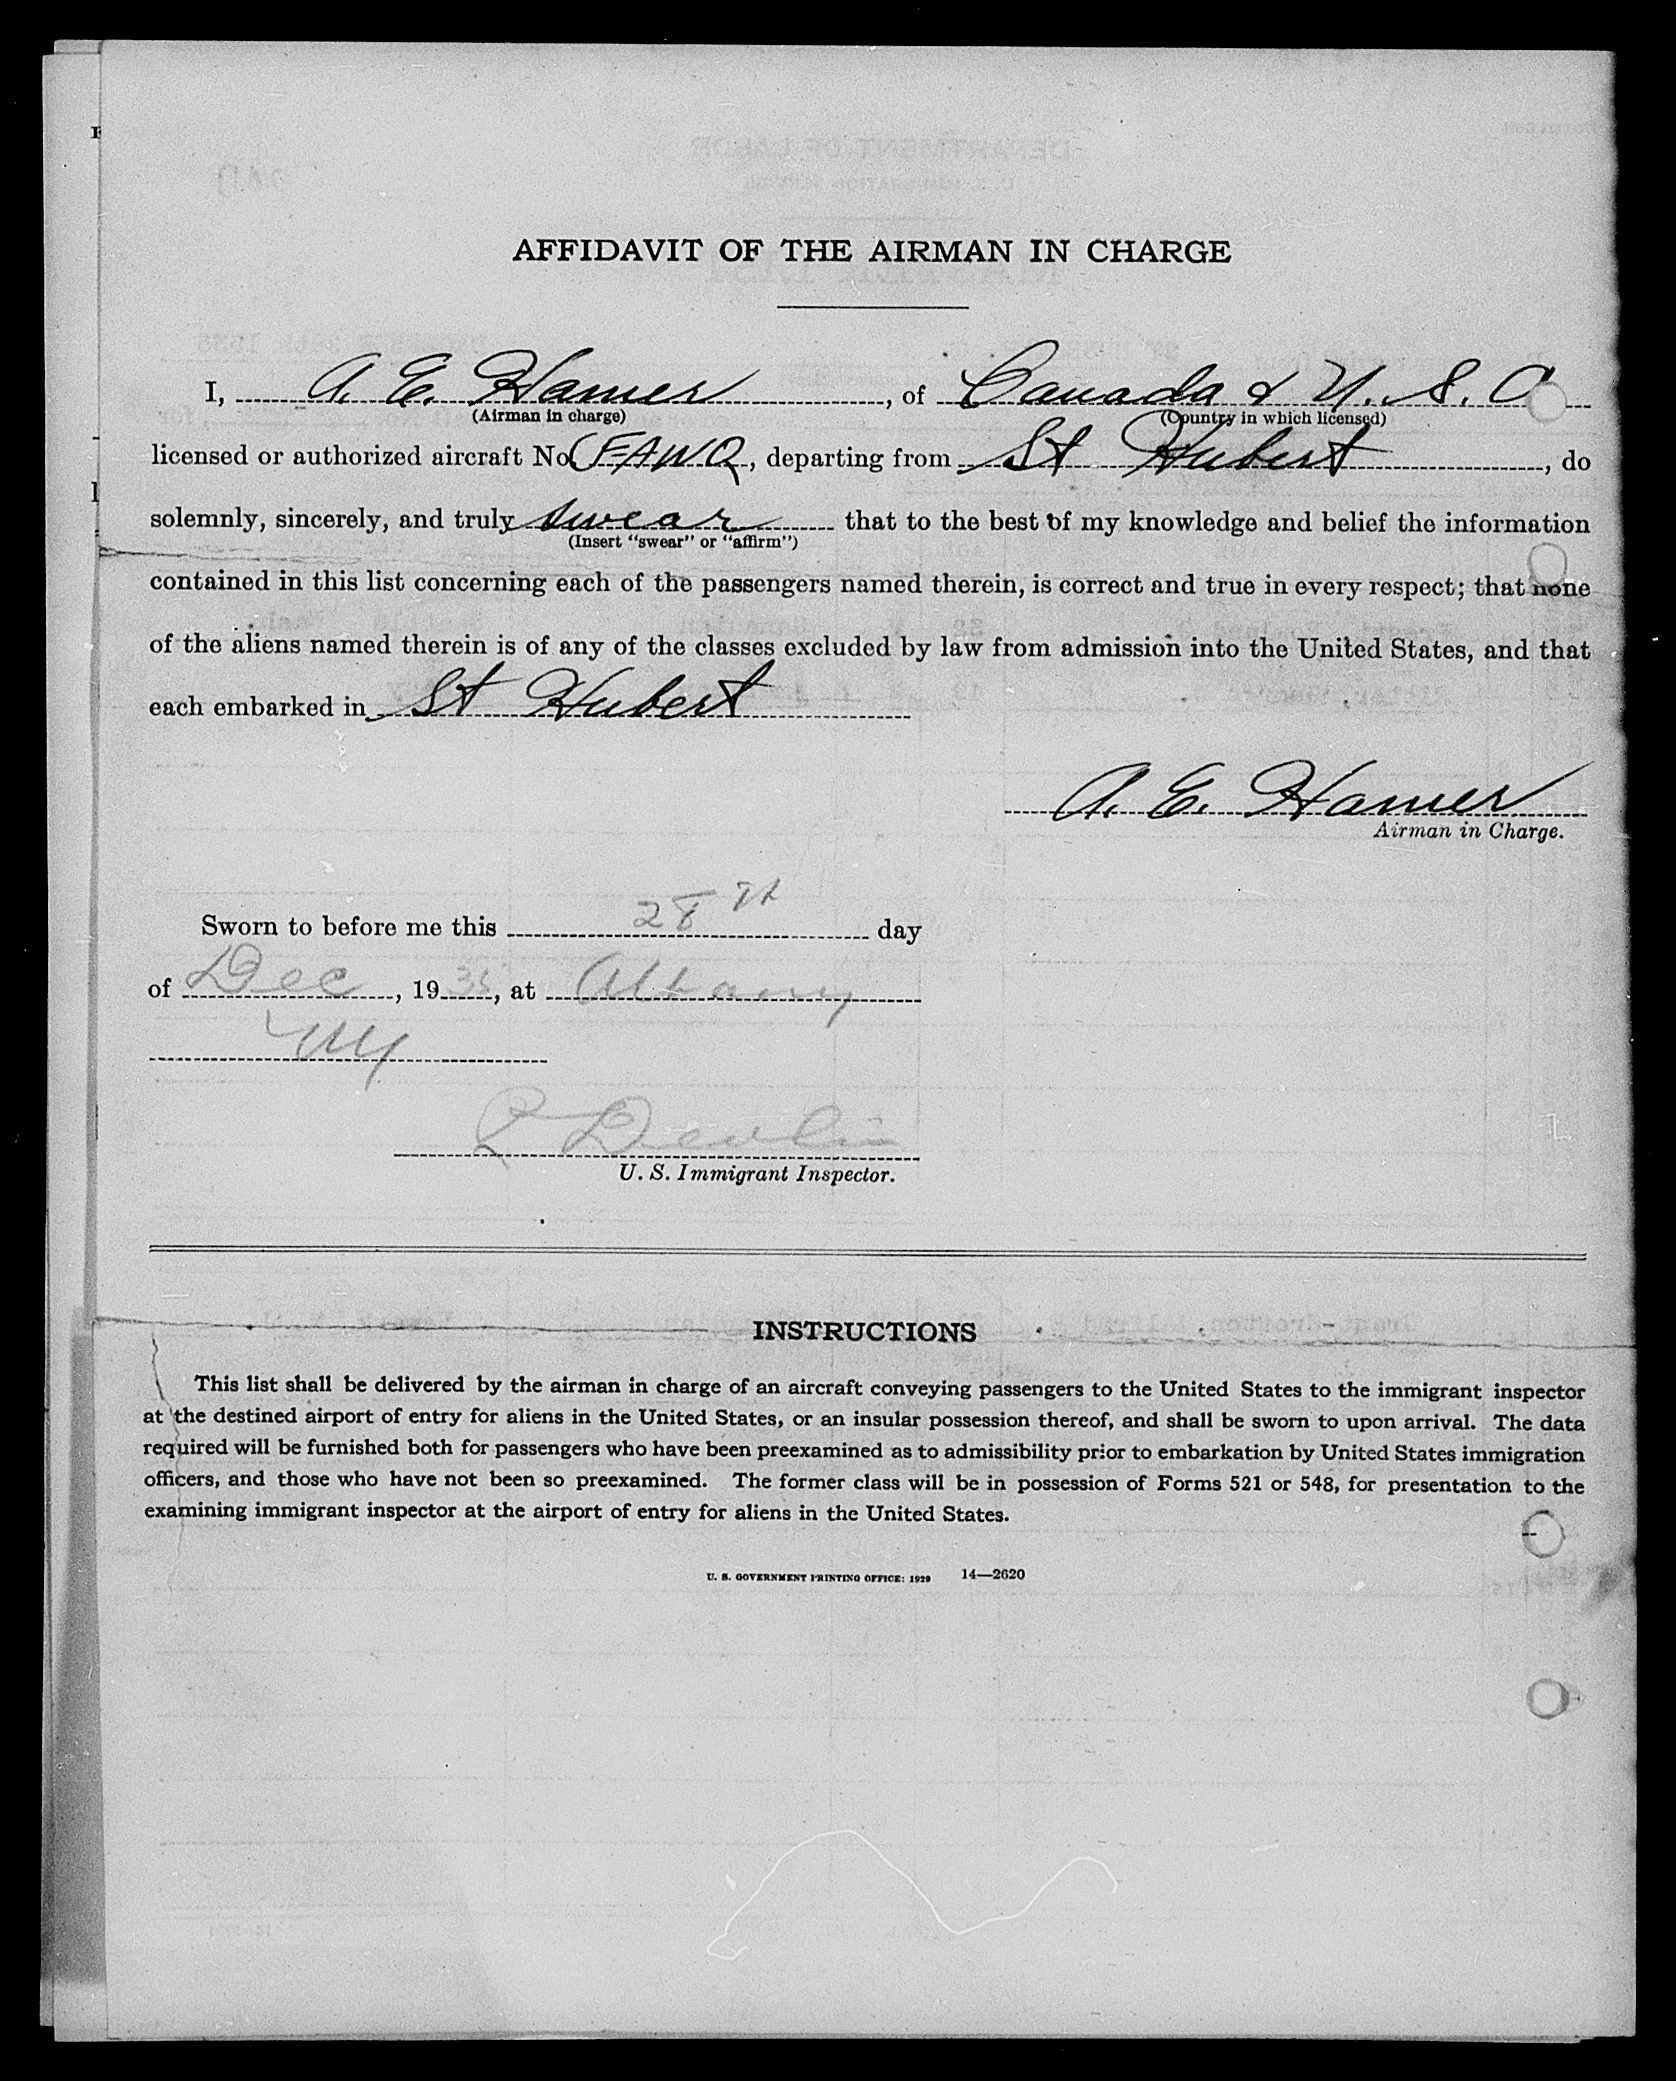 AFFIDAVIT OF THE AIRMAN IN CHARGE
I, A. E. Hamer, of Canada & U. S. A
(Airman in charge) (Country in which licensed)
licensed or authorized aircraft No CFAWQ, departing from St Hubert, do
solemnly, sincerely, and truly swear that to the best of my knowledge and belief the information
(Insert "swear" or "affirm")
contained in this list concerning each of the passengers named therein, is correct and true in every respect; that none
of the aliens named therein is of any of the classes excluded by law from admission into the United States, and that
each embarked in St Hubert
A. E. Hamer
Airman in Charge.
Sworn to before me this 28 th day
of Dec, 1935, at Albany
NY
Devlin
U. S. Immigrant Inspector.
INSTRUCTIONS
This list shall be delivered by the airman in charge of an aircraft conveying passengers to the United States to the immigrant inspector
at the destined airport of entry for aliens in the United States, or an insular possession thereof, and shall be sworn to upon arrival. The data
required will be furnished both for passengers who have been preexamined as to admissibility prior to embarkation by United States immigration
officers, and those who have not been so preexamined. The former class will be in possession of Forms 521 or 548, for presentation to the
examining immigrant inspector at the airport of entry for aliens in the United States.
U. S. GOVERNMENT PRINTING OFFICE: 1929 14—2620